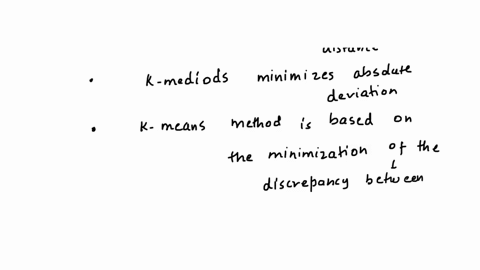 • K-mediods minimizes absolute
deviation
• K-means method is based on
the minimization of the
discrepancy between